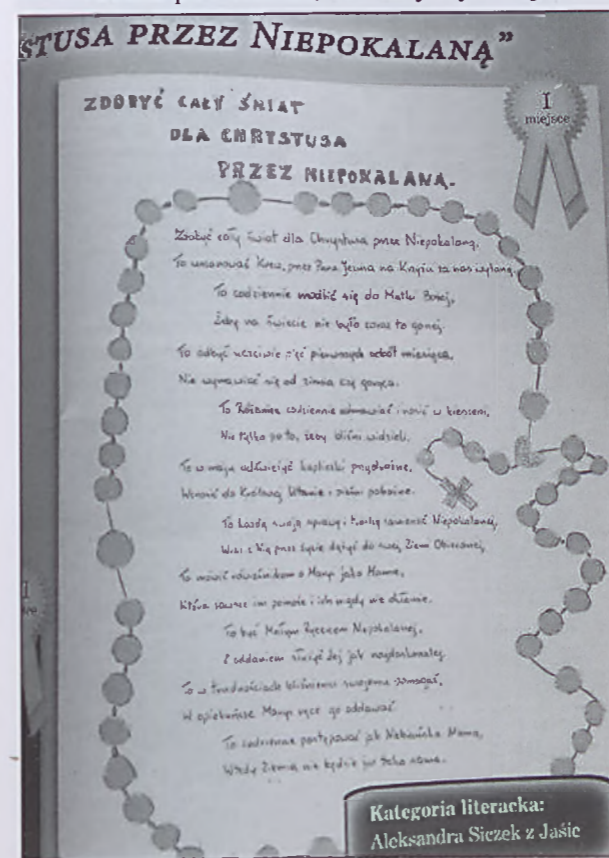 STUSA PRZEZ NIEPOKALANĄ”
I
miejsce
ZDOBYĆ CAŁY ŚWIAT
DLA CHRYSTUSA
PRZEZ NIEPOKALANĄ.
Zdobyć cały świat dla Chrystusa przez Niepokalaną,
To umiłować Krew, przez Pana Jezusa na Krzyżu za nas wylaną,
To codziennie modlić się do Matki Bożej,
Żeby na świecie nie było coraz to gorzej.
To odbyć uczciwie pięć pierwszych sobót miesiąca,
Nie wymawiać się od zimna czy gorąca.
To Różaniec codziennie odmawiać i nosić w kieszeni,
Nie tylko po to, żeby bliźni widzieli.
To w maju odświeżyć kapliczki przydrożne,
Wznosić do Królowej litanie i pieśni pobożne.
To każdą swoją sprawę i troskę zawierzać Niepokalanej,
Wraz z Nią przez życie dążyć do swej Ziemi Obiecanej.
To mówić rówieśnikom o Maryi jako Mamie,
Która zawsze im pomoże i ich nigdy nie okłamie.
To być Małym Rycerzem Niepokalanej,
Z oddaniem służyć Jej jak najdoskonalej.
To w trudnościach bliźniemu swojemu pomagać,
W opiekuńcze Maryi ręce go oddawać
To codziennie postępować jak Niebiańska Mama,
Wtedy Ziemia nie będzie już taka sama.
Kategoria literacka:
Aleksandra Siczek z Jaśic